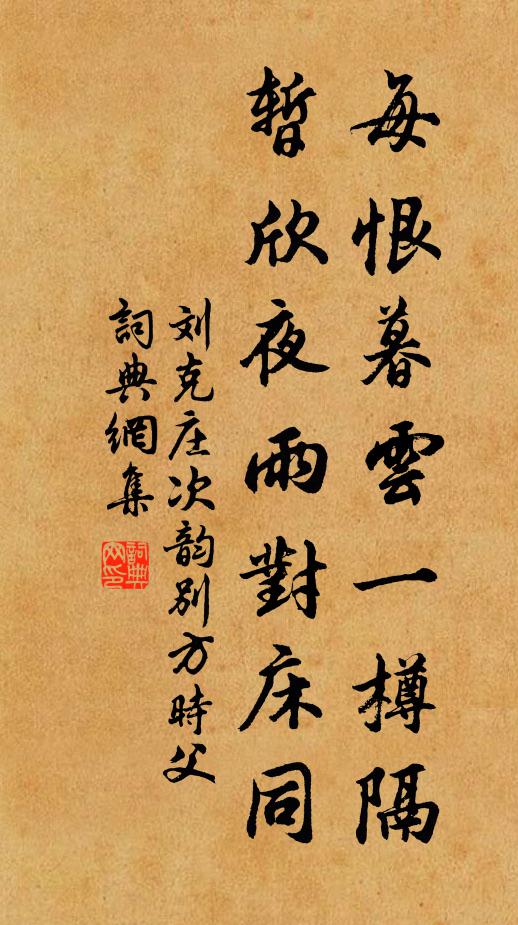 每恨暮雲一樽隔
暫欣夜雨對床同
刘克庄次韵別方時父
詞典網集
詞典网印